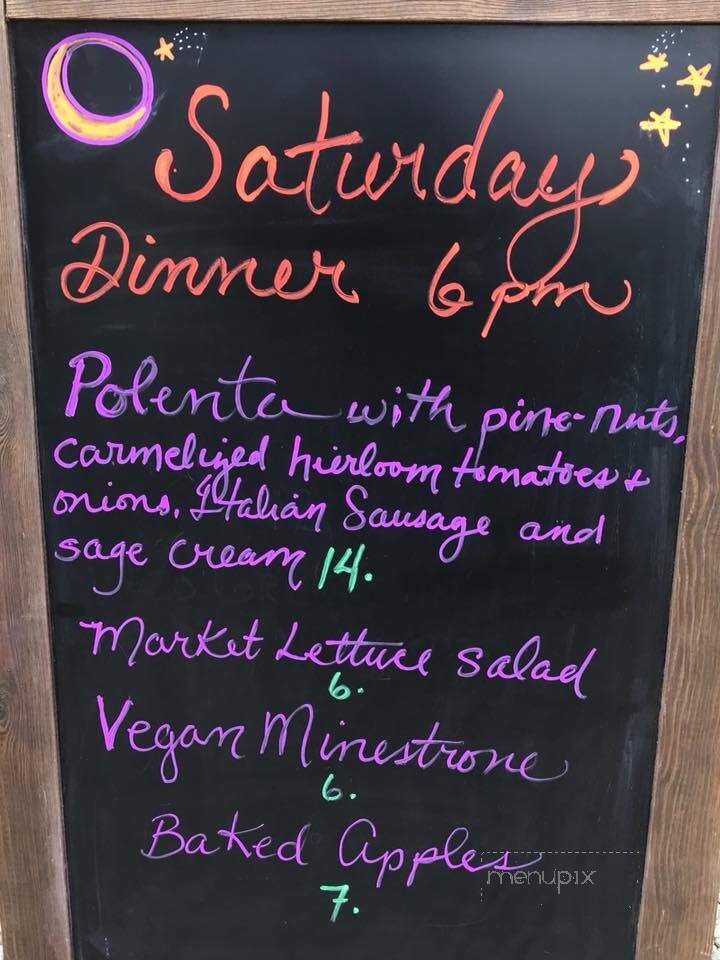 Saturday
Dinner 6pm
Polenta with pine-nuts,
carmelized hierloom tomatoes +
onions, Italian Sausage and
sage cream 14.
Market Lettuce salad
6.
Vegan Minestrone
6.
Baked Apples
menupix
7.